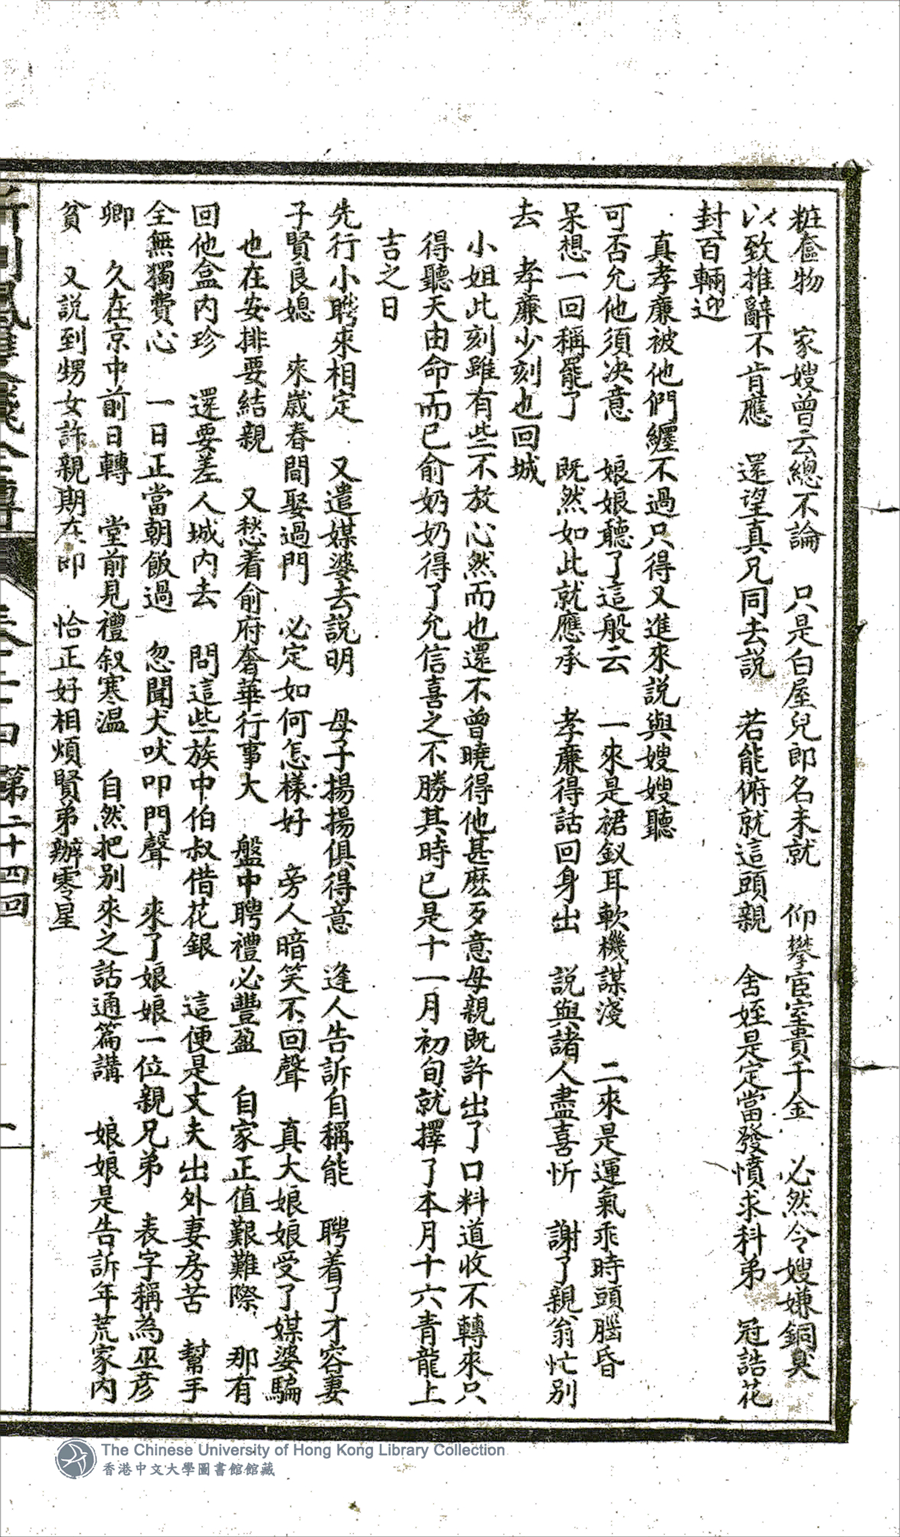 粧奩物　家嫂曾云總不論　只是白屋兒郎名未就　仰攀宦室貴千金　必然令嫂嫌銅臭
以致推辭不肯應　還望真兄同去説　若能俯就這頭親　舍姪是定當發憤求科弟　冠誥花
封百輛迎
真孝廉被他們纏不過只得又進來説與嫂嫂聽
可否允他須決意　娘娘聽了這般云　一來是裙釵耳軟機謀淺　二來是運氣乖時頭腦昏
呆想一回稱罷了　既然如此就應承　孝廉得話回身出　説與諸人盡喜忻　謝了親翁忙別
去　孝廉少刻也回城
小姐此刻雖有些不放心然而也還不曾曉得他甚麽歹意母親既許出了口料道收不轉來只
得聽天由命而已俞奶奶得了允信喜之不勝其時已是十一月初旬就擇了本月十六青龍上
吉之日
先行小聘來相定　又遣媒婆去説明　母子揚揚俱得意　逢人告訴自稱能　聘着了才容妻
子賢良媳　來歲春間娶過門　必定如何怎樣好　旁人暗笑不回聲　真大娘娘受了媒婆騙
也在安排要結親　又愁着俞府奢華行事大　盤中聘禮必豐盈　自家正值艱難際　那有
回他盒内珍　還要差人城内去　問這些族中伯叔借花銀　這便是丈夫出外妻房苦　幫手
全無獨費心　一日正當朝飯過　忽聞犬吠叩門聲　來了娘娘一位親兄弟　表字稱為巫彦
卿　久在京中前日轉　堂前見禮叙寒温　自然把別來之話通篇講　娘娘是告訴年荒家内
貧　又説到甥女許親期在即　恰正好相煩賢弟辦零星
卷二十四　第二十四回
The Chinese University of Hong Kong Library Collection
香港中文大學圖書館館藏